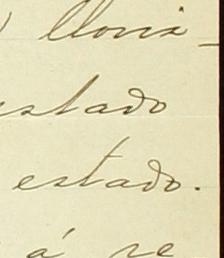 ) llovia_
estado
estado.
á se